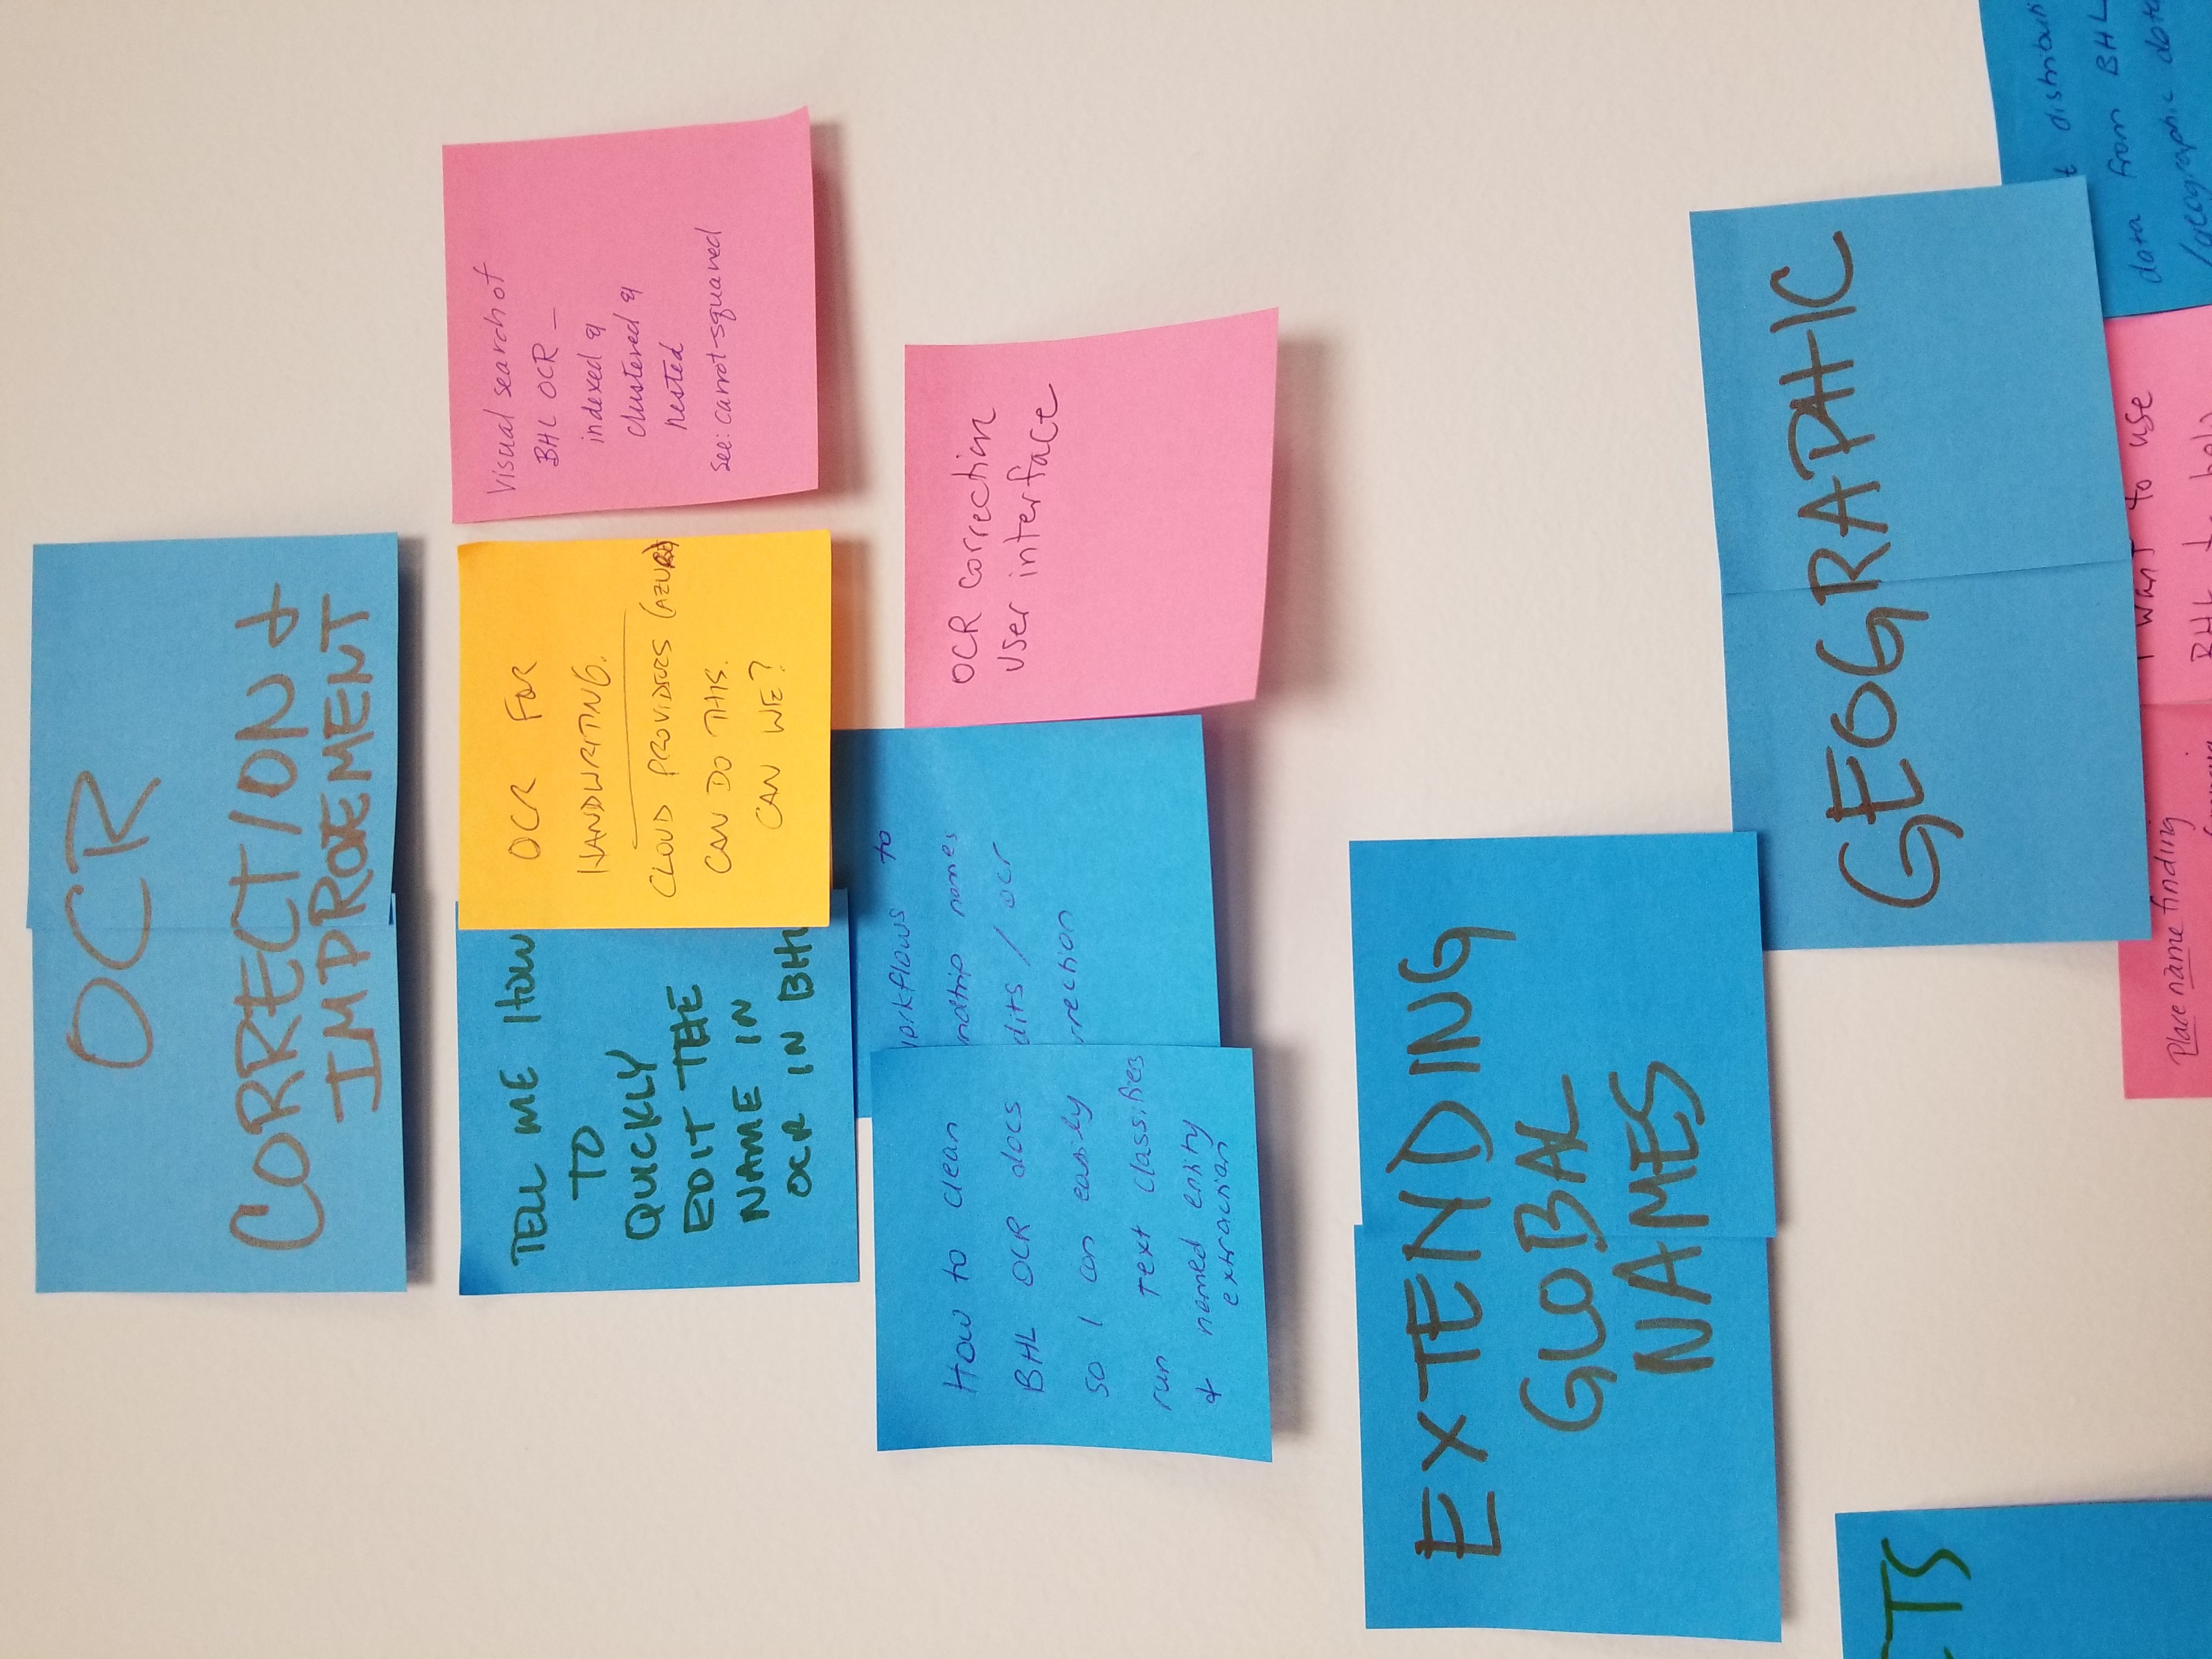 OCR
CORRECTION &
IMPROVEMENT
TELL ME HOW
TO
QUICKLY
EDIT THE
NAME IN
OCR IN BHL
OCR FOR
HANDWRITNG.
CLOUD PROVIDERS (AZURE)
CAN DO THIS.
CAN WE?
Visual search of
BHL OCR –
indexed &
clustered &
nested
see: carrot-squared
How to clean
BHL OCR docs
so I can easily
run text classifiers
& named entity
extraction
orkflows to
ndtrip names
dits / ocr
rrection
OCR correction
user interface
EXTENDING
GLOBAL
NAMES
GEOGRAPHIC
CTS
Place name finding
I want to use
BHL to help
t distributi
data from BHL
/geographic data